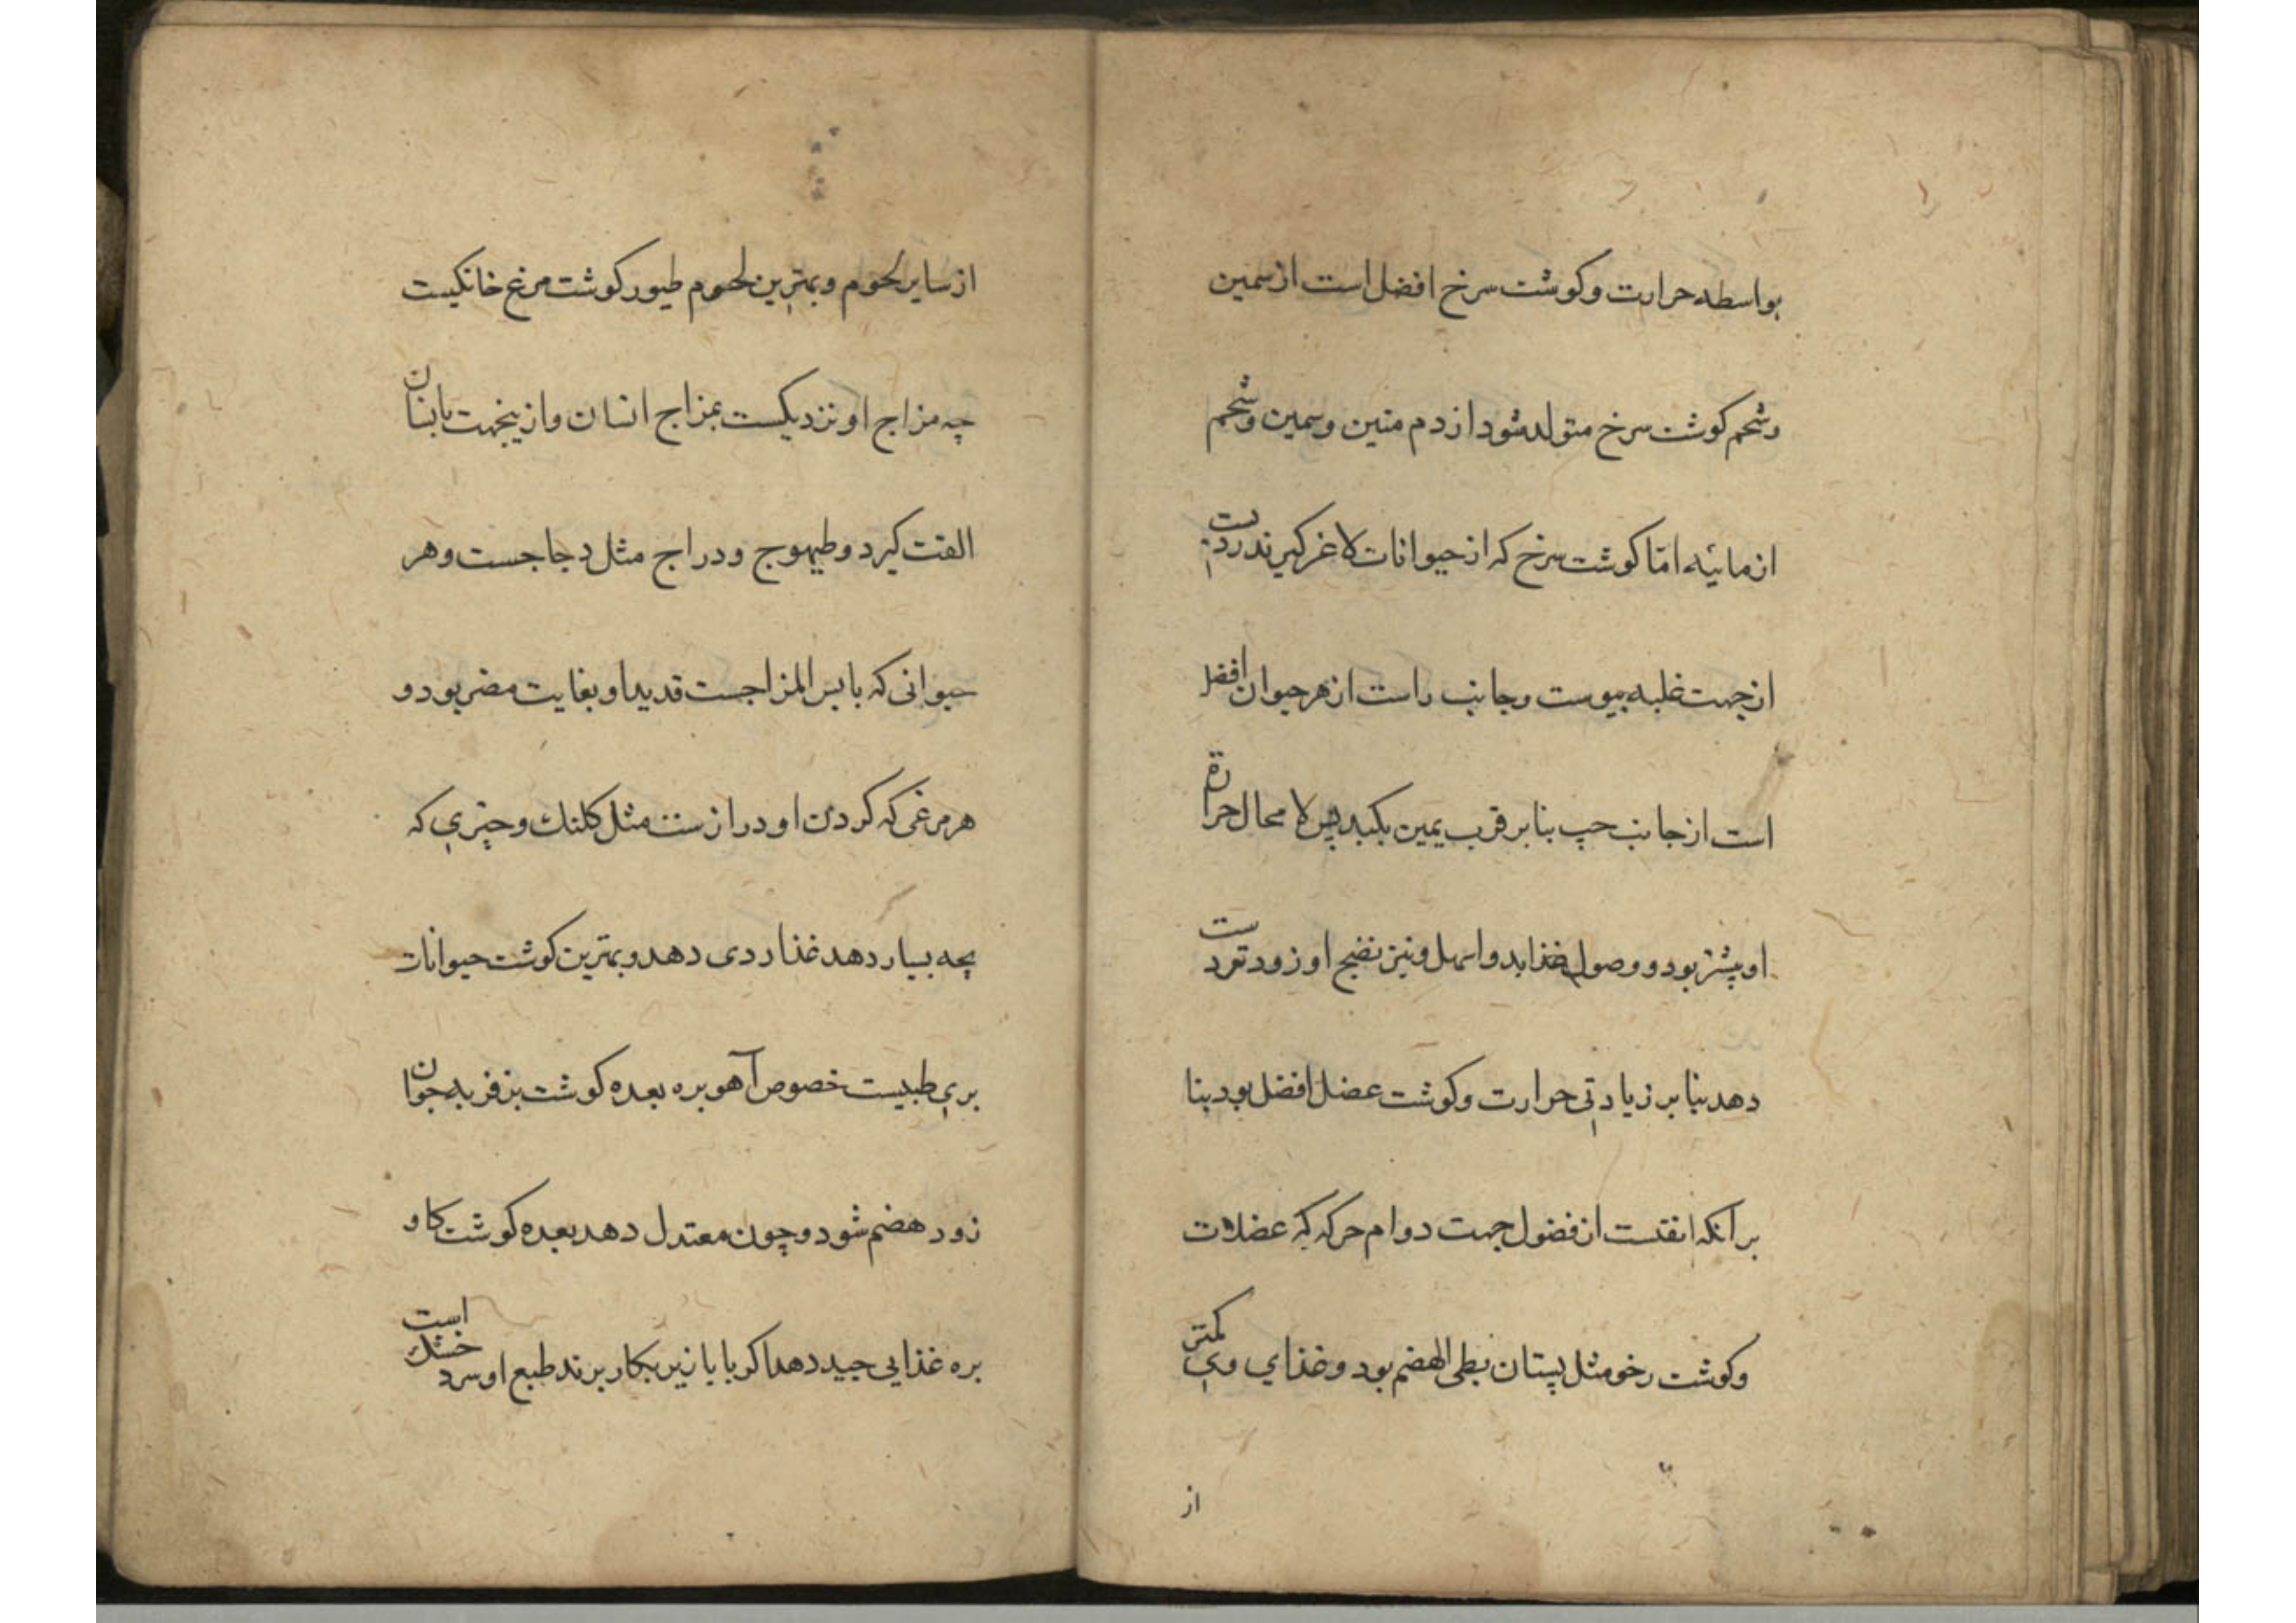 بواسطه حرارت وکوشت سرخ افضل است از سمین
وشحم کوشت سرخ متولد شود از دم متین وسمین وشحم
از مائیه اما کوشت سرخ که از حیوانات لاغر کیرند ردیست
از جهت غلبه یبوست وجانب راست از هر حیوان افضل
است از جانب چپ بنا بر قرب یمین بکبد پس لا محال حرارة
او بیشتر بود و وصول غذا بدو اسهل ونیز نضج او زودتر دست
دهد بنا بر زیادتی حرارت وکوشت عضل افضل بود بنا
بر آنکه انقیست از فضول جهت دوام حرکه که عضلات
وکوشت رخو مثل پستان بطی الهضم بود وغذای وی کمتر
از
از سایر لحوم وبهترین لحوم طیور کوشت مرغ خانکیست
چه مزاج او نزدیکست بمزاج انسان وازینجهت بانسان
الفت کیرد وطیهوج ودراج مثل دجاجست وهر
حیوانی که یابس المزاجست قدید او بغایت مضر بود و
هر مرغی که کردن او درازست مثل کلنک وچیزی که
بچه بسیار دهد غذا ردی دهد وبهترین کوشت حیوانات
بری طبیست خصوص آهو بره بعده کوشت بز فربه جوان
زود هضم شود وچون معتدل دهد بعده کوشت کاو
بره غذایی جید دهد اکر با بازیر بکار برند طبع او سرد خشک است